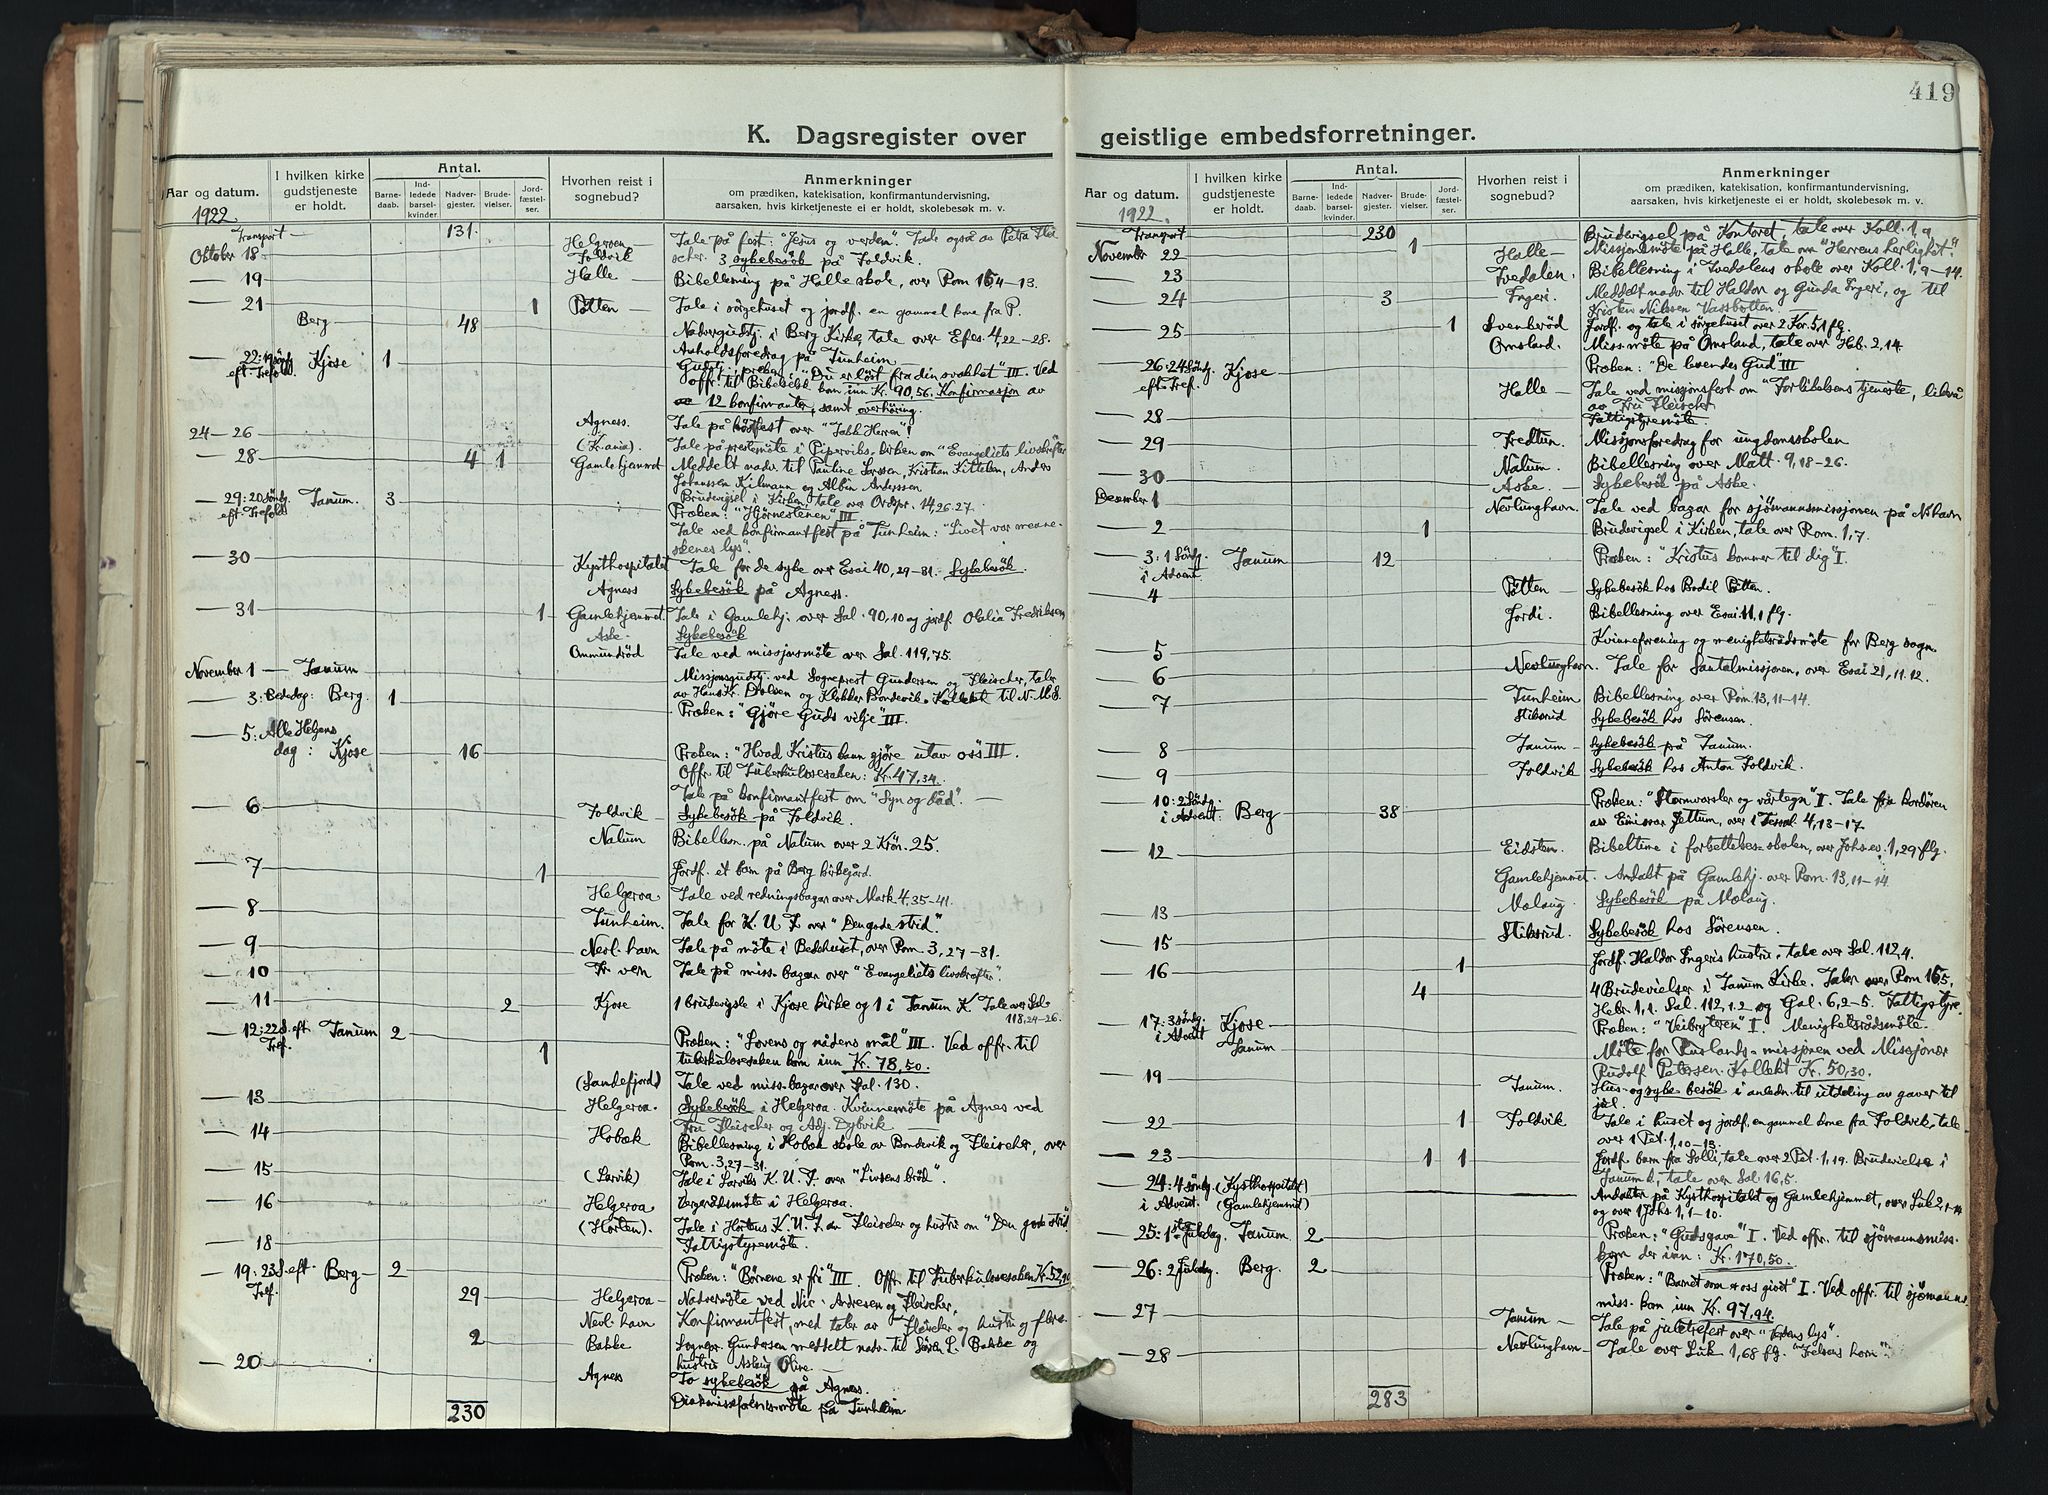 K. Dagsregister over
Aar og datum.
I hvilken kirke gudstjeneste er holdt.
Antal.
Barne-daab.
Ind-ledede barsel-kvinder.
Nadver-gjester.
Brude-vielser.
Jord-fæstel-ser.
Hvorhen reist i sognebud?
Anmerkninger
om prædiken, katekisation, konfirmantundervisning,
aarsaken, hvis kirketjeneste ei er holdt, skolebesøk m. v.
1922.
Transport — 131. Helgeroen Tale på fest: "Jesus og verden". Tale også av Petra Flei
Oktober 18 Foldvik scher. 3 sykebesök på Foldvik.
— 19 Halle — Bibellesning på Halle skole, over Rom 15,4–13.
— 21 1 Pötten — Tale i sörgehuset og jordf. en gammel kone fra P.
Berg 48 Nadvergudstj. i Berg Kirke, tale over Efes. 4,22–28.
Avholdsforedrag på Tunheim.
— 22: 19 Söndg. eft. Trefold. Kjose 1 Gudstj., preken: "Du er löst fra din svakhet" III. Ved
offr. til Bibelselsk. kom inn Kr. 90,56. Konfirmasjon av
12 konfirmanter, samt overhöring.
Agness. Tale på höstfest over "Takk Herren"!
24–26 (Kr.ania). Tale på prestemöte i Pipervikskirken om "Evangeliets livskrefter
— 28 4 1 Gamlehjemmet Meddelt nadv. til Pauline Larssen, Kristian Kittelsen, Anders
Johanssen Kilmann og Albin Anderssen.
Brudevigsel i Kirken tale over Ordspr. 14,26.27.
— 29: 20 Söndg. eft. Trefold Tanum. 3 Preken: "Hjörnestenen" III
Tale ved konfirmantfest på Tunheim: "Livet var menne-
skenes lys".
— 30 Kysthospitalet Tale for de syke over Esai 40,29–31. Sykebesök.
Agness Sykebesök på Agness.
— 31 1 Gamlehjemmet. Tale i Gamlehj. over Sal. 90,10 og jordf. Otalia Fredriksen
Aske. Sykebesök
Ommundröd Tale ved missjonsmöte over Sal. 119,75.
November 1 — Tanum Missjonsgudstj. ved Sogneprest Gundersen og Fleischer, taler
av Hans Kr. Dolven og Klokker Bondevik. Kollekt til N.M.S.
— 3: Bededag: Berg 1 Preken: "Gjöre Guds vilje" III.
— 5: Alle Helgens dag: Kjose 16 Preken: "Hvad Kristus kan gjöre utav oss III.
Offr. til Tuberkulosesaken: Kr. 47,34.
Tale på konfirmantfest om "Syn og dåd". —
— 6 Foldvik Sykebesök på Foldvik.
Nalum Bibellesn. på Nalum over 2 Krön. 25.
— 7 1 Jordf. et barn på Berg kirkegård.
Helgeroa Tale ved redningsbazar over Mark. 4,35–41.
— 8 Tunheim. Tale for K.U.F. over "Den gode strid."
— 9 Nevl. havn Tale på möte i Bedehuset, over Rom. 3,27–31.
— 10 Fr. vern Tale på miss. bazar over "Evangeliets livskrefter".
— 11 2 Kjose 1 brudevigsle i Kjose kirke og 1 i Tanum K. Tale over Sal.
118,24–26.
— 12: 22 S. eft. Tref. Tanum 2 Preken: "Lovens og nådens mål" III. Ved offr. til
1 tuberkulosesaken kom inn Kr. 78,50.
(Sandefjord) Tale ved miss. bazar over Sal. 130.
— 13 Helgeroa. Sykebesök i Helgeroa. Kvinnemöte på Agnes ved
Fru Fleischer og Adj. Dybvik
— 14 Hobæk Bibellesning i Hobæk skole av Bondevik og Fleischer, over
Rom. 3,27–31.
— 15 (Larvik) Tale i Larviks K.U.F. over "Livsens bröd".
— 16 Helgeroa Vergerådsmöte i Helgeroa.
(Horten). Tale i Hortens K.U.F. av Fleischer og hustru om "Den gode strid
— 18 Fattigstyremöte.
— 19: 23 S. eft. Tref. Berg 2 Preken: "Börnene er fri" III. Offr. til Tuberkulosesaken Kr. 52,
29 Helgeroa — Nadvermöte ved Nic. Andresen og Fleischer.
Nevl. havn Konfirmantfest, med taler av Fleischer og hustru og flere.
2 Bakke Sognepr. Gundersen meddelt nadv. til Sören L. Bakke og
hustru Aslaug Oline. —
— 20 Agness To sykebesök på Agness.
på Tunheim
230
419
geistlige embedsforretninger.
Aar og datum.
I hvilken kirke gudstjeneste er holdt.
Antal.
Barne-daab.
Ind-ledede barsel-kvinder.
Nadver-gjester.
Brude-vielser.
Jord-fæstel-ser.
Hvorhen reist i sognebud?
Anmerkninger
om prædiken, katekisation, konfirmantundervisning,
aarsaken, hvis kirketjeneste ei er holdt, skolebesøk m. v.
1922.
Transport 230 Brudevigsel på Kontoret, tale over Koll. 1,9
November 22 1 Halle — Missjonsmöte på Halle, tale om "Herrens herlighet."
— 23 Tvedalen. Bibellesning i Tvedalens skole over Koll. 1,9–14.
— 24 3 Ingeri. Meddelt nadv. til Haldor og Gunda Ingeri, og til
Kristen Nilssen Vassbotten. —
— 25 1 Svenberöd Jordf. og tale i sörgehuset over 2 Kor. 5,1 flg.
Omsland. Miss. möte på Omsland, tale over Heb. 2,14.
26: 24 Söndg. eft. Tref. Kjose Preken: "De levendes Gud" III
Halle — Tale ved missjonsfest om "Forlikelsens tjeneste, likeså
av Fru Fleischer
— 28 Fattigstyremöte.
— 29 Fredtun. Missjonsforedrag for ungdomsskolen
Nalum. Bibellesning over Matt. 9,18–26.
— 30 Aske — Sykebesök på Aske.
Desember 1 Nevlunghavn. Tale ved bazar for sjömannsmissjonen på N.havn
— 2 1 Brudevigsel i Kirken, tale over Rom. 1,7.
— 3: 1 Söndg. i Advent Tanum 12 Preken: "Kristus kommer til dig" I.
— 4 Pötten — Sykebesök hos Bodil Pötten.
Jordi. Bibellesning over Esai. 11,1 flg.
— 5 Kvinneforening og menighetsrådsmöte for Berg sogn.
Nevlunghavn. Tale for Santalmissjonen, over Esai 21,11.12.
— 6 Tunheim Bibellesning over Rom. 13,11–14.
— 7 Stiksrud Sykebesök hos Sörensen.
— 8 Tanum — Sykebesök på Tanum.
— 9 Foldvik Sykebesök hos Anton Foldvik.
— 10: 2 Söndg. i Advent. Berg 38 Preken: "Stormvarsler og vårtegn" I. Tale fra kordören
av Emissær Jettum, over 1 Tessal. 4,13–17.
— 12 Eidsten. Bibeltime i fortsettelses-skolen, over Johs. ev. 1,29 flg.
Gamlehjemmet. Andakt på Gamlehj. over Rom. 13,11–14.
— 13 Molaug. Sykebesök på Molaug.
— 15 Stiksrud. Sykebesök hos Sörensen.
— 16 1 Jordf. Haldor Ingeris hustru, tale over Sal. 112,4.
4 4 Brudevielser i Tanum Kirke. Taler over Rom 15,5,
Hebr. 1,1. Sal. 112,1.2 og Gal. 6,2–5. Fattigstyre.
— 17: 3 söndg. i Advent Kjose — Preken: "Veibryteren" I. Menighetsrådsmöte.
Tanum — Möte for Ruslands-missjonen ved Missjonær
Rudolf Petersen. Kollekt Kr. 50,30.
— 19 Tanum. Hus- og sykebesök i anledn. til utdeling av gaver til
jul.
— 22 1 Foldvik Tale i huset og jordf. en gammel kone fra Foldvik, tale
over 1 Pet. 1,10–15.
— 23 1 1 Jordf. barn fra Solli, tale over 2 Pet. 1,19. Brudevielse i
Tanum k., tale over Sal. 16,5.
24: 4 söndg. i Advent. (Kysthospitalet) (Gamlehjemmet) Andakter på Kysthospitalet og Gamlehjemmet, over Luk 2,1–14
og over 1 Johs. 1,1–10.
— 25: 1ste Juledag. Tanum. 2 Preken: "Guds gave" I. Ved offr. til sjömannsmiss.
kom der inn: Kr. 170,50.
— 26: 2 Juledg. Berg. 2 Preken: "Barnet som er oss givet" I. Ved offr. til sjömanns.
miss. kom inn Kr. 97,94.
— 27 Tanum — Tale på juletrefest over "Verdens lys".
— 28 Nevlunghavn — Tale over Luk 1,68 flg. "Frelsens horn".
283